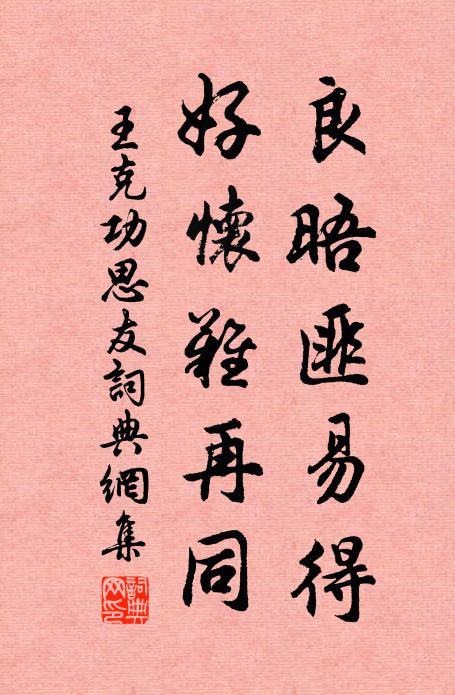 良晤匪易得
好懷難再同
王克功思友詞典網集
詞典網印